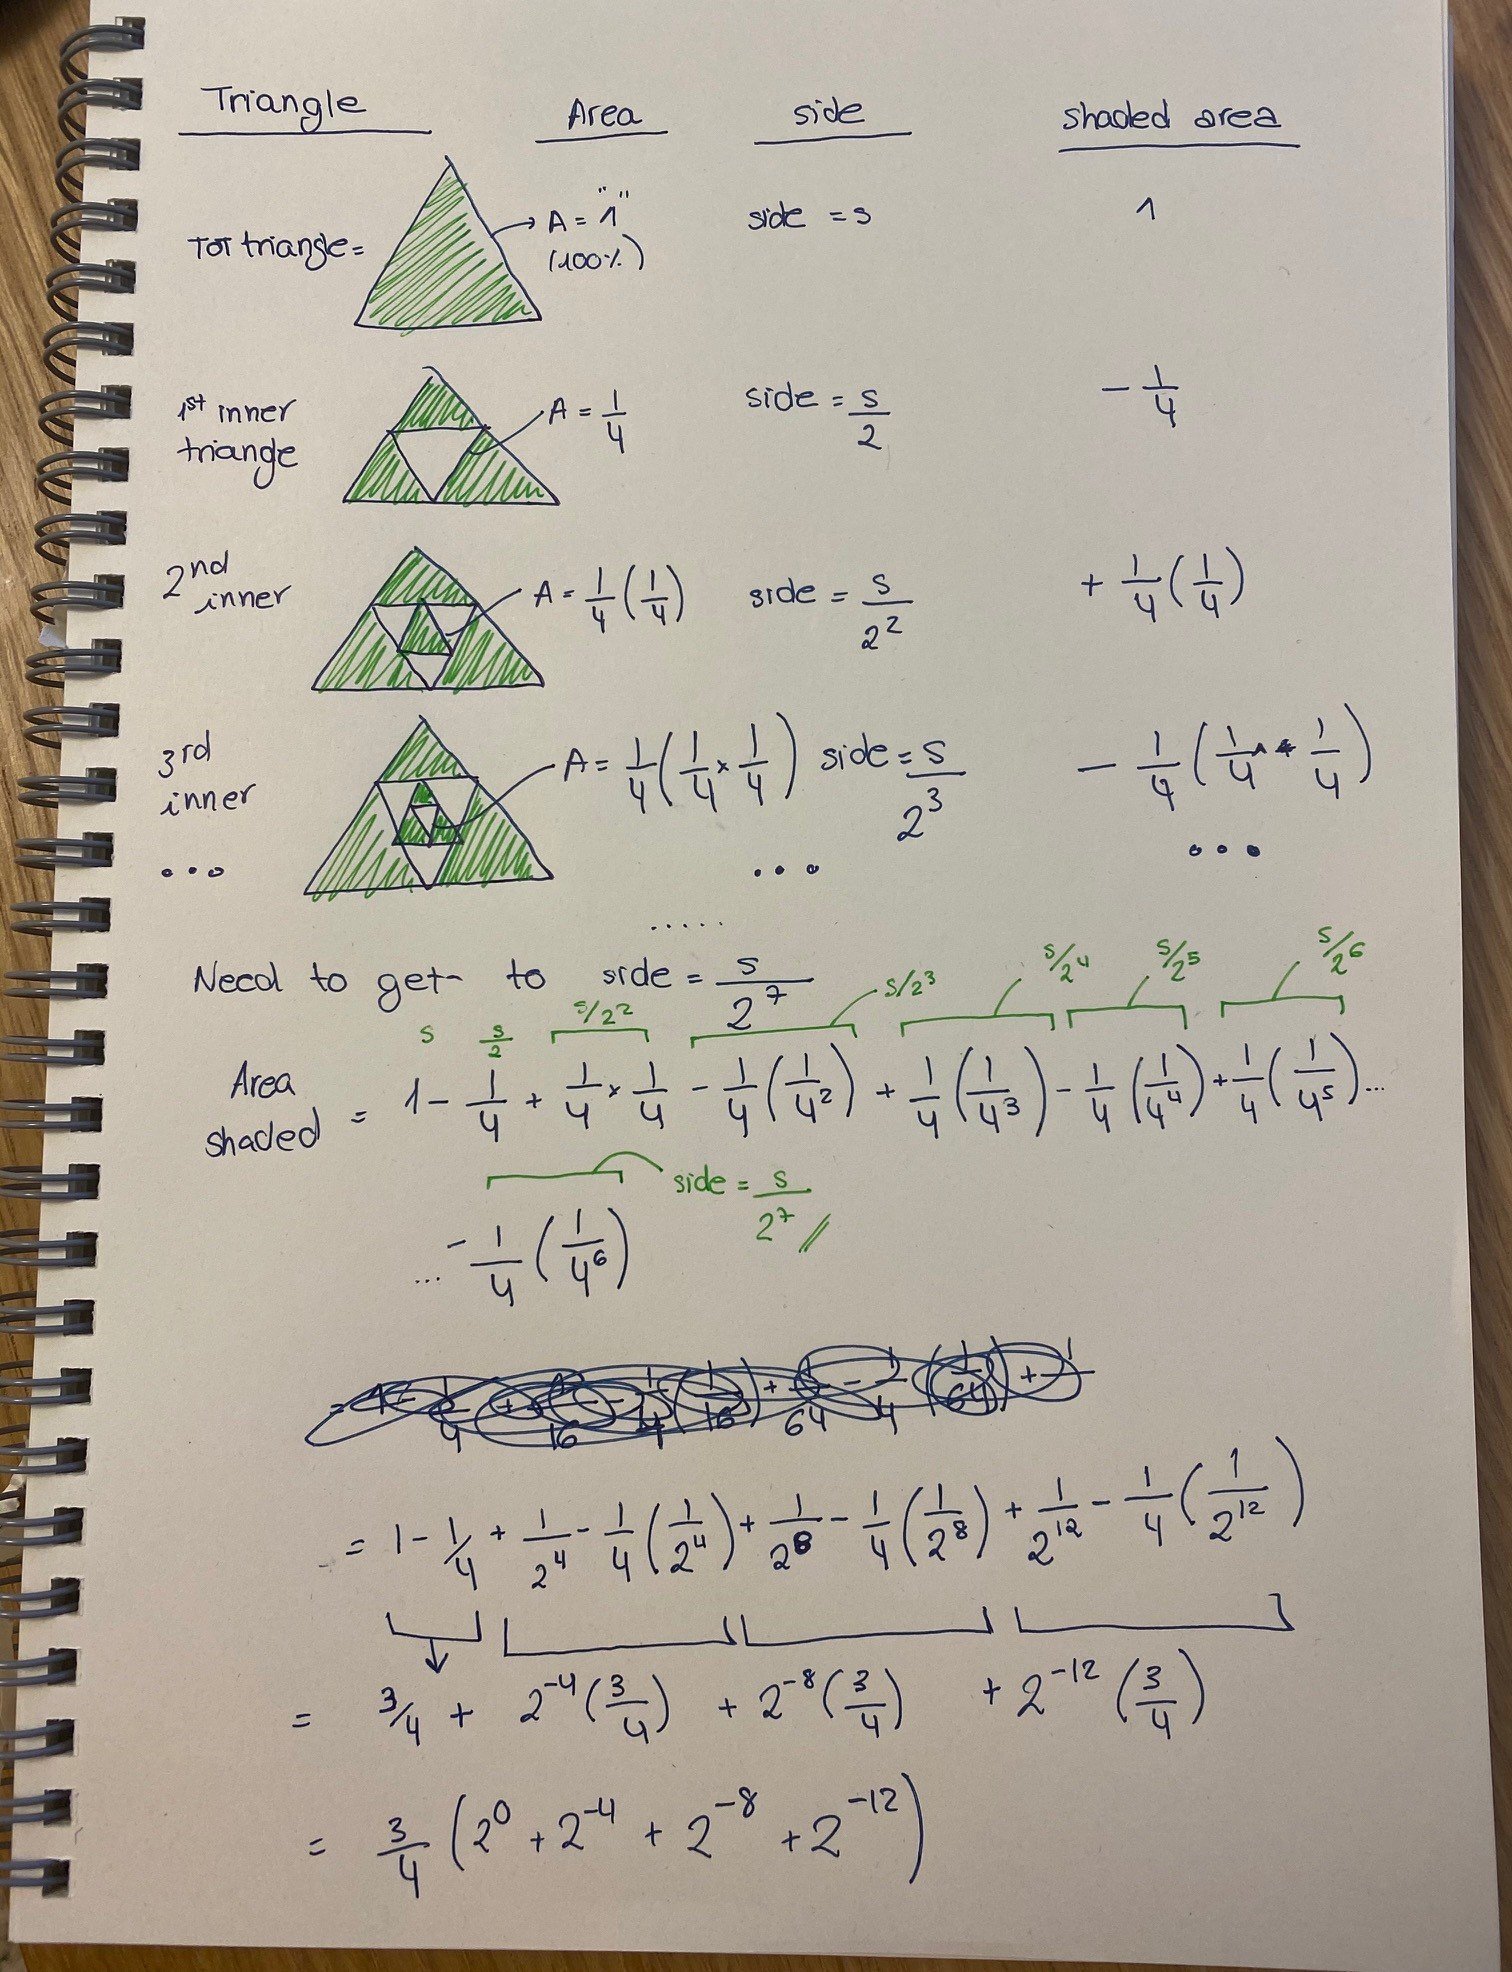 Triangle Area side shaded area
TOT triangle = A = "1" side = s 1
(100%)
1st inner A = 1/4 side = s/2 - 1/4
triange
2nd A = 1/4 (1/4) side = s/2^2 + 1/4 (1/4)
inner
3rd A = 1/4 (1/4 × 1/4) side = s/2^3 - 1/4 (1/4 * 1/4)
inner
... ... ...
.....
Need to get to side = s/2^7
s s/2 s/2^2 s/2^3 s/2^4 s/2^5 s/2^6
Area
shaded = 1 - 1/4 + 1/4 × 1/4 - 1/4 (1/4^2) + 1/4 (1/4^3) - 1/4 (1/4^4) + 1/4 (1/4^5) ...
side = s/2^7 //
... - 1/4 (1/4^6)
= 1 - 1/4 + 1/2^4 - 1/4 (1/2^4) + 1/2^8 - 1/4 (1/2^8) + 1/2^12 - 1/4 (1/2^12)
= 3/4 + 2^-4 (3/4) + 2^-8 (3/4) + 2^-12 (3/4)
= 3/4 (2^0 + 2^-4 + 2^-8 + 2^-12)